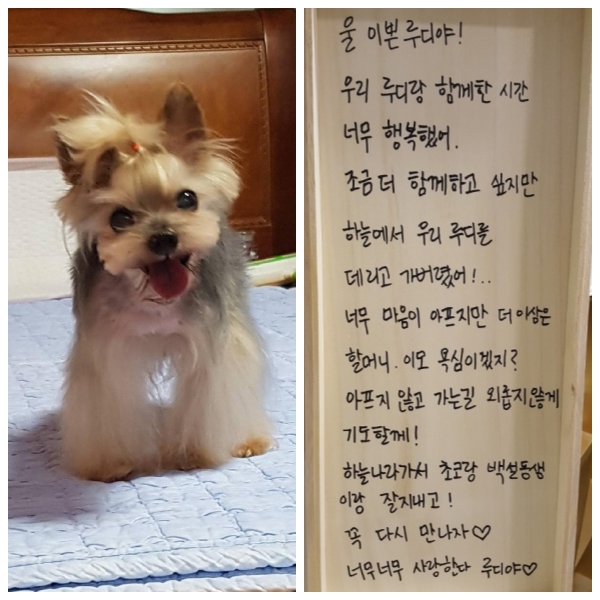 울 이쁜 루디야!
우리 루디랑 함께한 시간
너무 행복했어.
조금 더 함께하고 싶지만
하늘에서 우리 루디를
데리고 가버렸어!..
너무 마음이 아프지만 더이상은
할머니. 이모 욕심이겠지?
아프지 않고 가는길 외롭지않게
기도할께!
하늘나라가서 초코랑 백설동생
이랑 잘지내고!
꼭 다시 만나자♡
너무너무 사랑한다 루디야♡